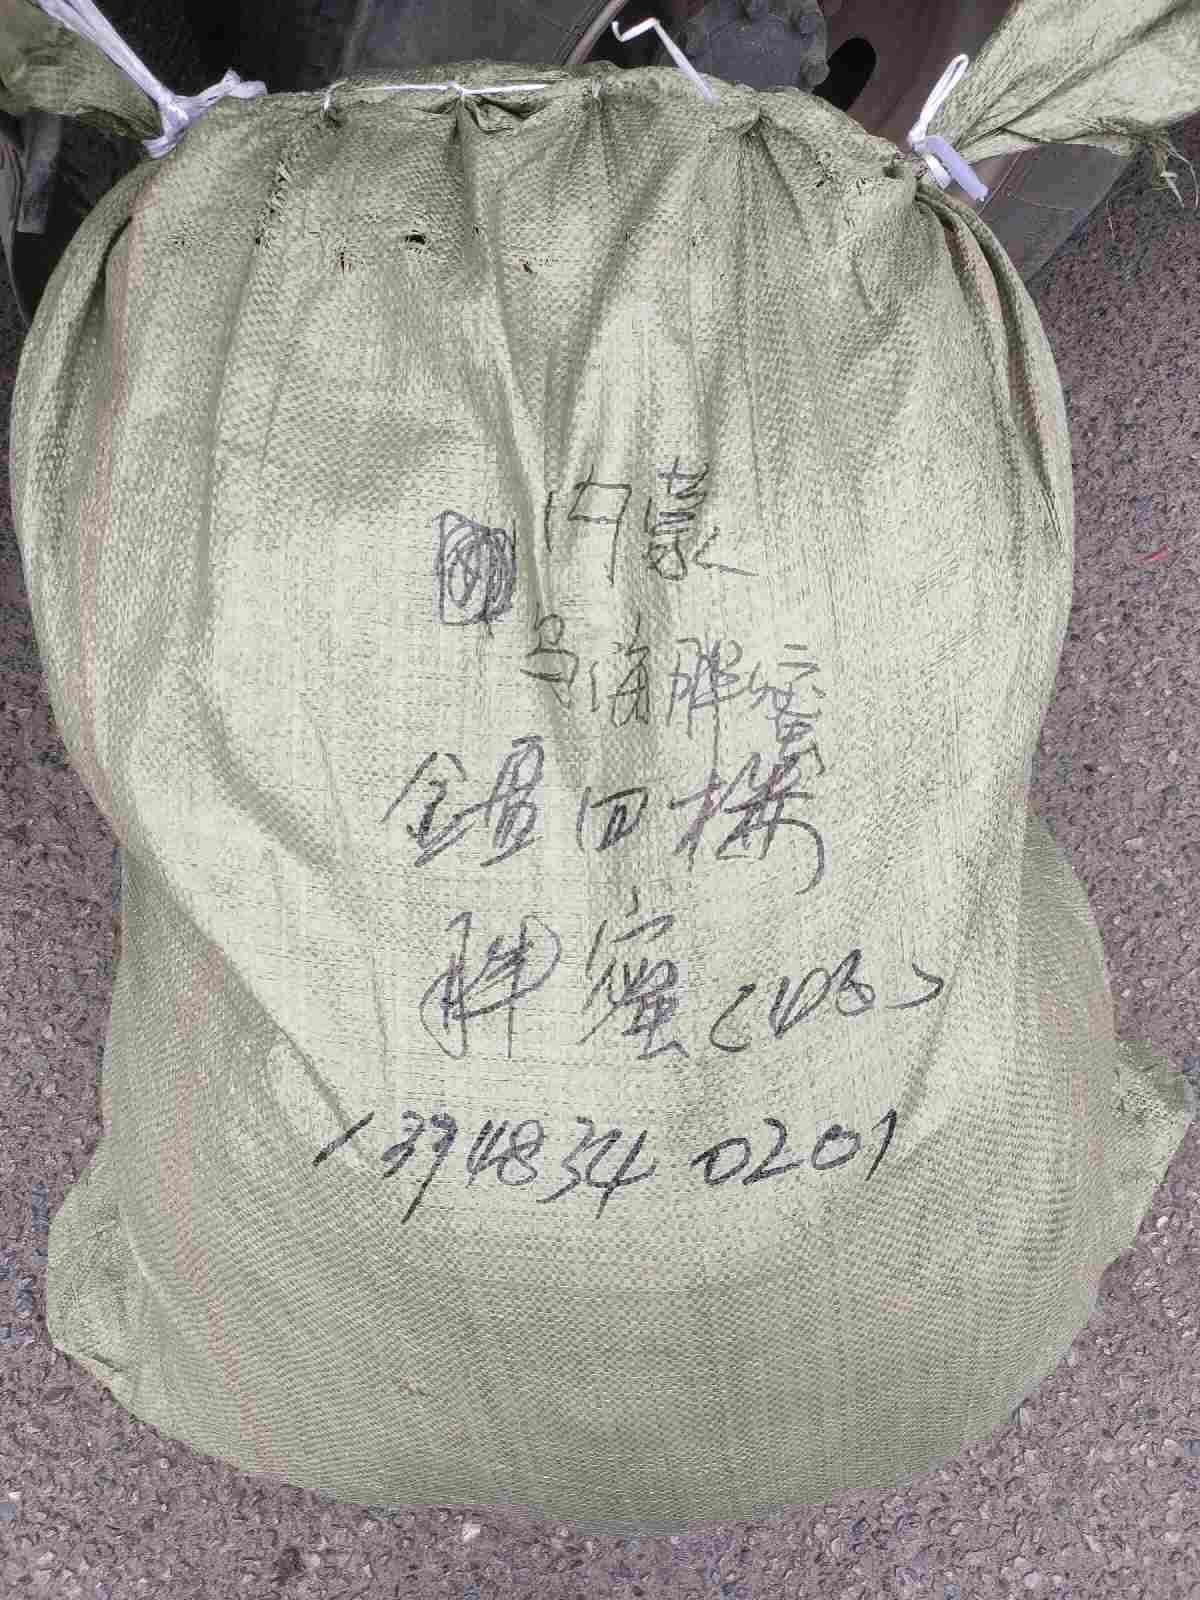 内蒙
乌海胖蜜
金盈四楼
胖蜜(108)
13948340201